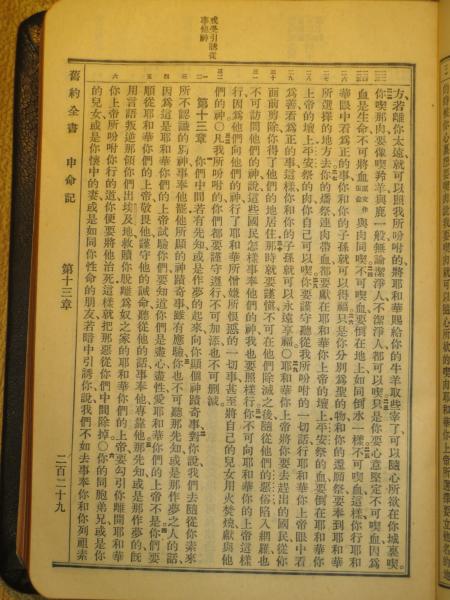 戒受引誘從
事他神
方若離你太遠就可以照我所吩咐的將耶和華賜給你的牛羊取些宰了可以隨心所欲在你城裏喫
你喫那肉要像喫羚羊與鹿一般無論潔淨人不潔淨人都可以喫只是你要心意堅定不可喫血因爲
血是生命不可將血與肉同喫不可喫血要倒在地上如同倒水一樣不可喫血這樣你行耶和
華眼中看爲正的事你和你的子孫就可以得福只是你分別爲聖的物和你的還願祭要奉到耶和華
所選擇的地方去你的燔祭連肉帶血都要獻在耶和華你上帝的壇上平安祭的血要倒在耶和華你
上帝的壇上平安祭的肉你自己可以喫你要謹守聽從我所吩咐的一切話行耶和華你上帝眼中看
爲善看爲正的事這樣你和你的子孫就可以永遠享福〇耶和華你上帝將你要去趕出的國民從你
面前剪除你得了他們的地居住那時就要謹愼不可在他們除滅之後隨從他們的惡俗陷入網羅也
不可訪問他們的神說這些國民怎樣事奉他們的神我也要照樣行你不可向耶和華你的上帝這樣
行因爲他們向他們的神行了耶和華所憎嫌所恨惡的一切事甚至將自己的兒女用火焚燒獻與他
們的神〇凡我所吩咐的你們都要謹守遵行不可加添也不可刪減
第十三章
你們中間若有先知或是作夢的起來向你顯個神蹟奇事對你說我們去隨從你素來
所不認識的別神事奉他罷他所顯的神蹟奇事雖有應驗你也不可聽那先知或是那作夢之人的話
因爲這是耶和華你們的上帝試驗你們要知道你們是盡心盡性愛耶和華你們的上帝不是你們要
順從耶和華你們的上帝敬畏他謹守他的誡命聽從他的話事奉他專靠他那先知或是那作夢的旣
用言語叛逆那領你們出埃及地救贖你脫離爲奴之家的耶和華你們的上帝要勾引你離開耶和華
你上帝所吩咐你行的道你便要將他治死這樣就把那惡從你們中間除掉〇你的同胞弟兄或是你
的兒女或是你懷中的妻或是如同你性命的朋友若暗中引誘你說我們不如去事奉你和你列祖素
舊約全書 申命記 第十三章 二百二十九